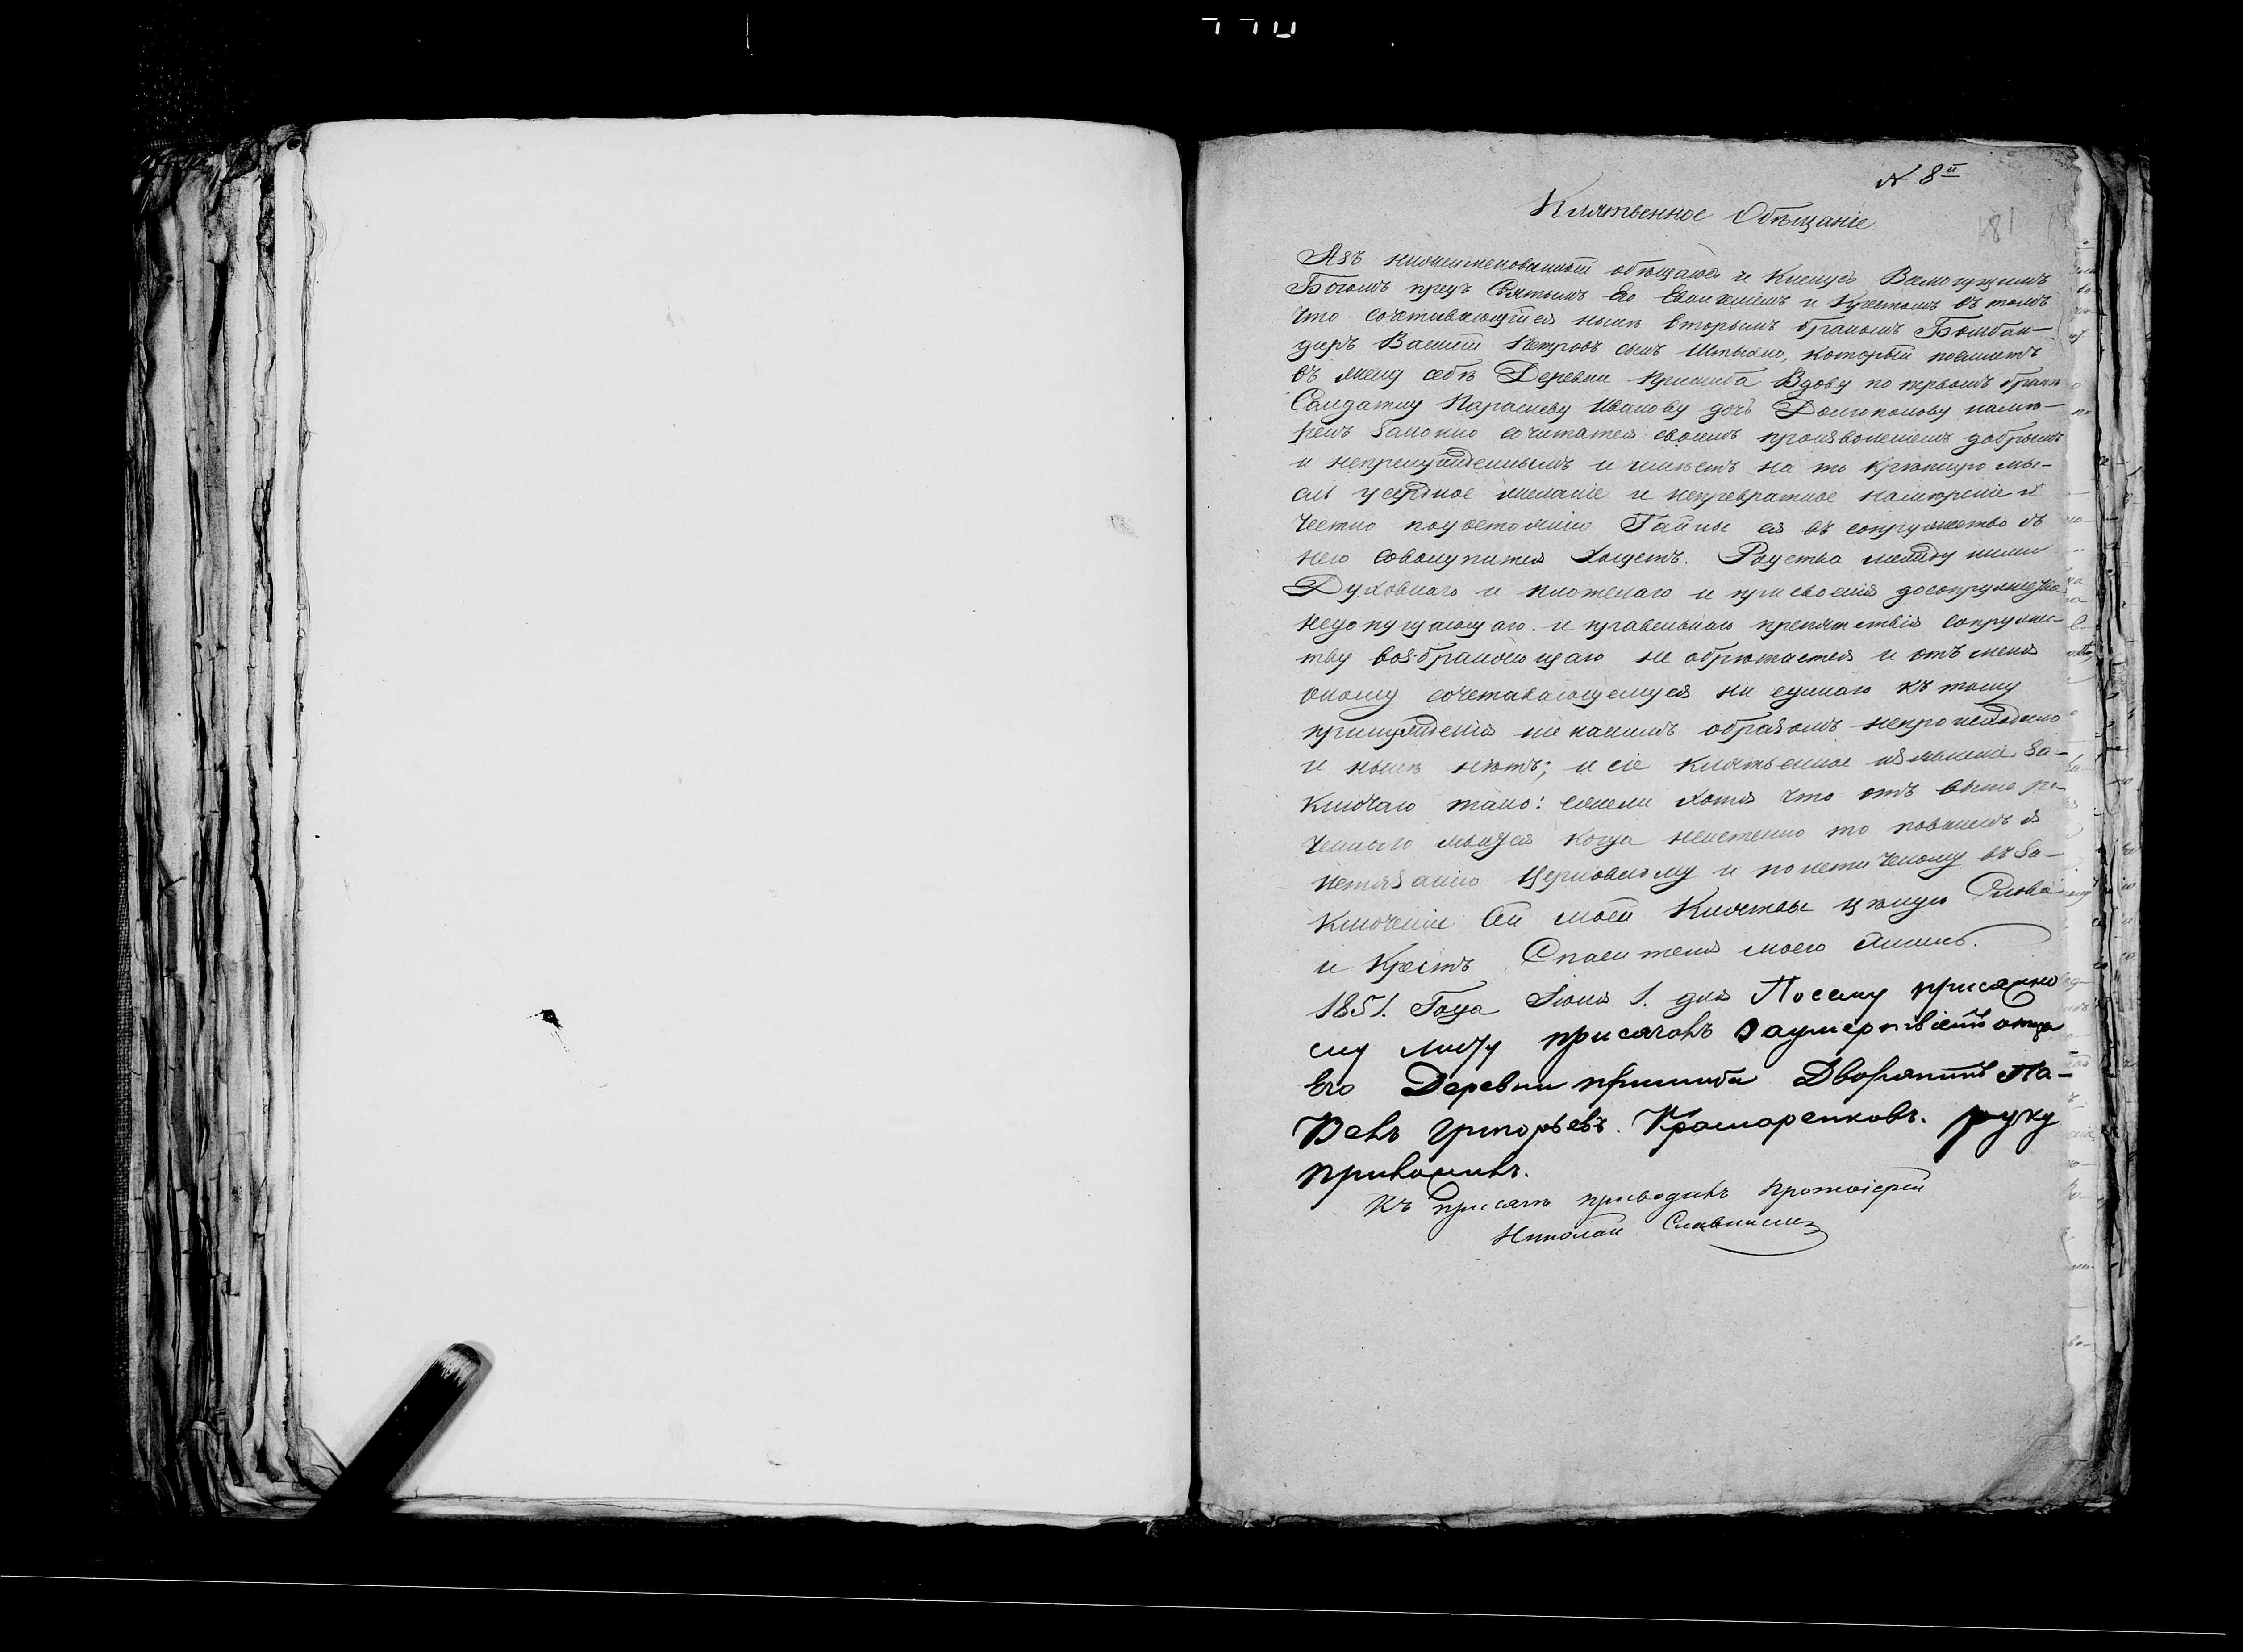 N 8й
Клятвенное Обѣщаніе
181
Азъ нижеименованный обѣщаюсь и Кленусь Всемогущимъ
Богомъ предъ Святымъ Его Евангеліемъ и Крестомъ въ томъ
что сочетивающійся нынѣ вторымъ бракомъ Бомбан-
диръ Василій Петровъ сынъ Штыхно, который поемлетъ
въ жену себѣ Деревни Пришиба Вдову по первомъ бракѣ
Салдатку Параскеву Иванову дочь Долгополову намѣ-
ренъ законно сочитатся своимъ произволеніемъ добрымъ
и непренужденнымъ и имѣетъ на то крѣпкую мы-
сль усердное желаніе и непревратное намѣреніе и
честно подостоянію Тайны ея въ сопружество съ
нею совокупится хощетъ. Родства между ними
Духовнаго и плотскаго и присвоенія досопружества
недопущающаго и правельнаго препятствія сопруже-
тву возбраняющаго не обрѣтается и отъ меня
оному сочетавающемуся ни единаго къ тому
принужденія ни какимъ образомъ непроисходило
и нынѣ нѣтъ; и сіе клятвенное изъявленіе за-
ключаю тако: ежели хотя что отъ выше ре-
ченнаго явится когда неистенно то повиненъ я
истязанію Церковному и политичному въ за-
ключеніе сей моей Клятвы цѣлую Слова
и Крестъ Спасителя моего Аминь.
1851. Года Іюня 1. дня Посему присяжно
му листу присягалъ заумертвіемъ отца
Его Деревни пришиба Дворянинъ Па-
велъ Григорьевъ Крамаренковъ. руку
приложилъ.
Къ присягѣ приводилъ Протоіерей
Николай